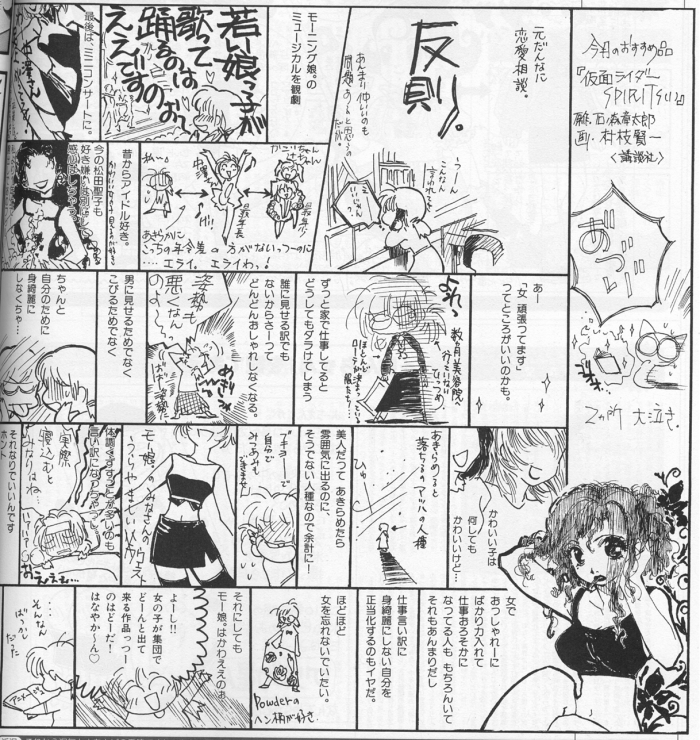 今月のおすすめ品
『仮面ライダー
SPIRITS』
原作 石ノ森章太郎
画・村枝賢一
〈講談社〉
あづいー
2の所 大泣き.
元だんなに
恋愛相談。
反則。
あんまり仲いいのも
問題あると思うの
だが。
うーん
こんなん
言われても
モーニング娘。の
ミュージカルを観劇
若い娘っ子が
歌って
踊るのは
ええですのお
最後は、ミニコンサートに。
昔からアイドル好き。
今の松田聖子も
好き嫌いは別に
感心はしちゃう。
あきらかに
こっちの年令差の方がないっつーのに
……エライ。エライわっ!
あー
「女 頑張ってます」
ってところがいいのかも。
よれっ
数ヶ月美容院へ
行っていない
ずっと家で仕事してると
どうしてもダラけてしまう
誰に見せる訳でも
ないからさーって
どんどんおしゃれしなくなる。
姿勢も
悪くなん
のよー
男に見せるためでなく
こびるためでなく
ちゃんと
自分のために
身綺麗に
しなくちゃ…
かわいい子は
何しても
かわいいけど…
あきらめると
落ちるのアッという間の人種
ひゅー
美人だって あきらめたら
雰囲気に出るのに、
そうでない人種なので余計に!
ブキヨーで
自分で
みつあみも
できません
モー娘。のみなさんの
ウエスト
うらやましい
体調くずすことが多いのも
言い訳になりがち。
実際
寝込むと
みなりはね…
おえぇぇ…
それなりでいいんです
女で
おっしゃれーに
ばかり力入れて
仕事おろそかに
なってる人も もちろんいて
それもあんまりだし
仕事言い訳に
身綺麗にしない自分を
正当化するのもイヤだ。
ほどほど
女を忘れないでいたい。
Powderの
ヘン柄が好き.
それにしても
モー娘。はかわええのぉ
よーし!!
女の子が集団で
どーんと出て
来る作品っつー
のはどーだ!
はなやかーん♡
…
そんなん
ばっか
だった